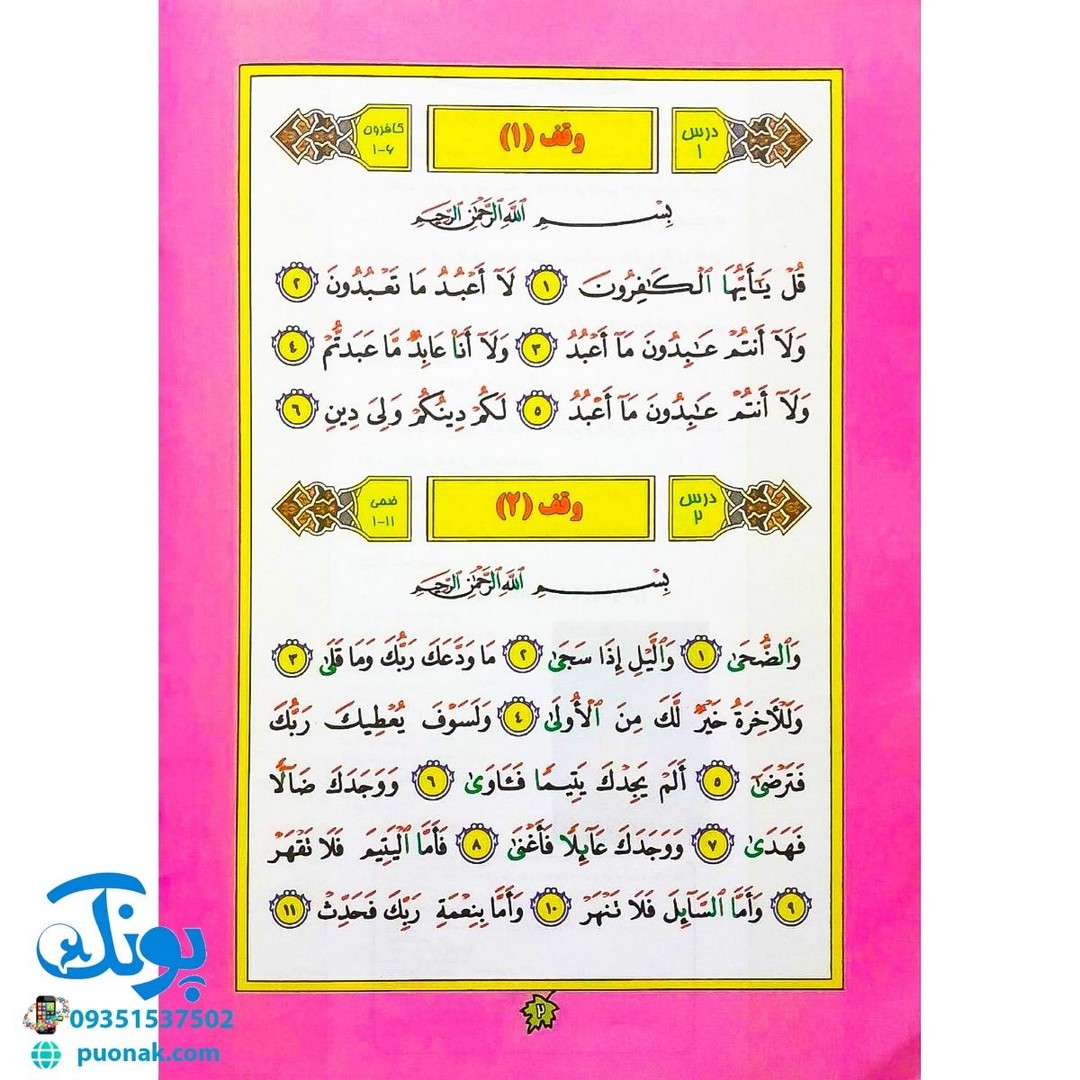 درس ۱
وقف (۱)
کافرون ۶-۱
بِسْمِ ٱللَّهِ ٱلرَّحْمَٰنِ ٱلرَّحِيمِ
قُلْ يَـٰٓأَيُّهَا ٱلْكَـٰفِرُونَ ۱ لَآ أَعْبُدُ مَا تَعْبُدُونَ ۲
وَلَآ أَنتُمْ عَـٰبِدُونَ مَآ أَعْبُدُ ۳ وَلَآ أَنَا۠ عَابِدٌ مَّا عَبَدتُّمْ ٤
وَلَآ أَنتُمْ عَـٰبِدُونَ مَآ أَعْبُدُ ۵ لَكُمْ دِينُكُمْ وَلِىَ دِينِ ۶
درس ۲
وقف (۲)
ضحی ۱۱-۱
بِسْمِ ٱللَّهِ ٱلرَّحْمَٰنِ ٱلرَّحِيمِ
وَٱلضُّحَىٰ ۱ وَٱلَّيْلِ إِذَا سَجَىٰ ۲ مَا وَدَّعَكَ رَبُّكَ وَمَا قَلَىٰ ۳
وَلَلْـَٔاخِرَةُ خَيْرٌ لَّكَ مِنَ ٱلْأُولَىٰ ٤ وَلَسَوْفَ يُعْطِيكَ رَبُّكَ
فَتَرْضَىٰٓ ۵ أَلَمْ يَجِدْكَ يَتِيمًا فَـَٔاوَىٰ ۶ وَوَجَدَكَ ضَآلًّا
فَهَدَىٰ ۷ وَوَجَدَكَ عَآئِلًا فَأَغْنَىٰ ۸ فَأَمَّا ٱلْيَتِيمَ فَلَا تَقْهَرْ
۹ وَأَمَّا ٱلسَّآئِلَ فَلَا تَنْهَرْ ۱۰ وَأَمَّا بِنِعْمَةِ رَبِّكَ فَحَدِّثْ ۱۱
۲
پونک
09351537502
puonak.com